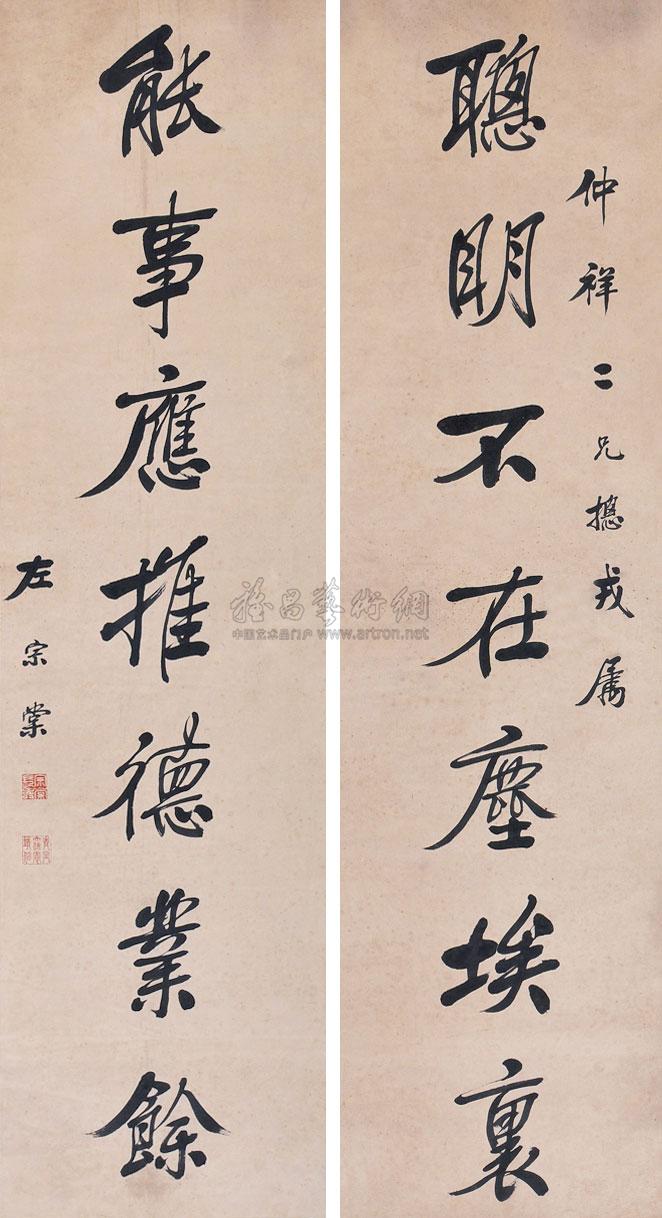 仲祥二兄摠戎属
聰明不在塵埃裏
能事應推德業餘
左宗棠
雅昌藝術網
中国艺术品门户 www.artron.net